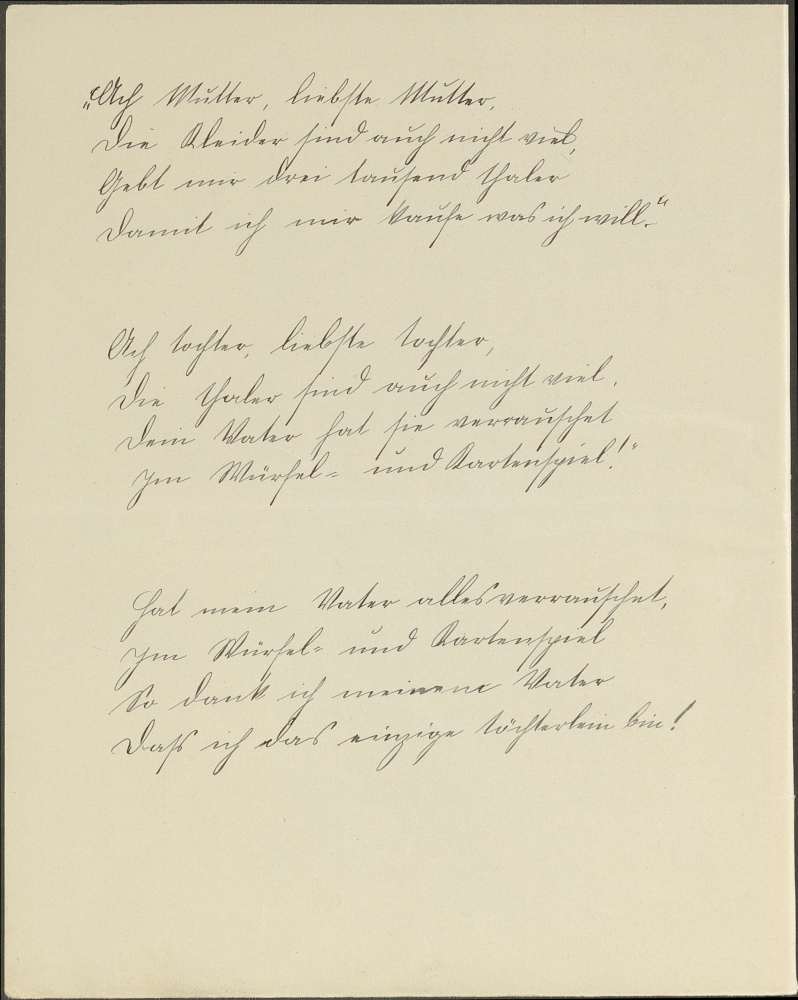 „Ach Mutter, liebste Mutter,
Die Kleider sind auch nicht viel,
Gebt mir drei tausend thaler
Damit ich mir kaufe was ich will."
Ach tochter, liebste tochter,
Die thaler sind auch nicht viel,
Dein Vater hat sie verrauschet
Im Würfel- und Kartenspiel!"
Hat mein Vater alles verrauschet,
Im Würfel- und Kartenspiel
So dank ich meinem Vater
Dass ich das einzige töchterlein bin!